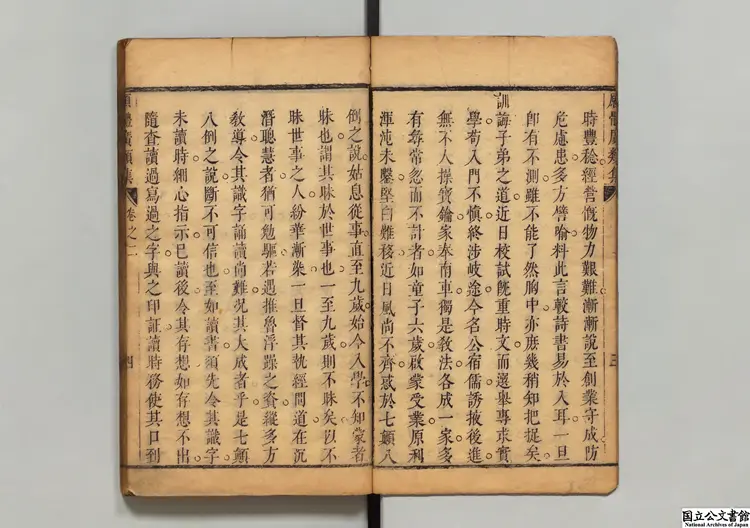 時豐稔經營慨物力艱難漸漸說至創業守成防
危慮患多方譬喻料此言較詩書易於入耳一旦
卽有不測雖不能了然胸中亦庶幾稍知把捉矣
訓誨子弟之道近日校試旣重時文而選舉專求實
學苟入門不慎終涉岐途今名公宿儒誘掖後進
無不人操寶鑰家奉南車獨是敎法各成一家多
有尋常忽而不計者如童子六歲啟蒙受業原利
渾沌未鑿堅白難移近日風尚不齊惑於七顛八
三
倒之說姑息從事直至九歲始令入學不知蒙者
昧也謂其昧於世事也一至九歲則不昧矣以不
昧世事之人紛華漸染一旦督其執經問道在沉
潛聰慧者猶可勉驅若遇推魯浮躁之資縱多方
敎導令其識字誦讀尚難况其大成者乎是七顛
八倒之說斷不可信也至如讀書須先令其識字
未讀時細心指示已讀後令其存想如存想不出
隨查讀過寫過之字與之印証讀時務使其口到
廣類集 卷之二 四
国立公文書館
National Archives of Japan